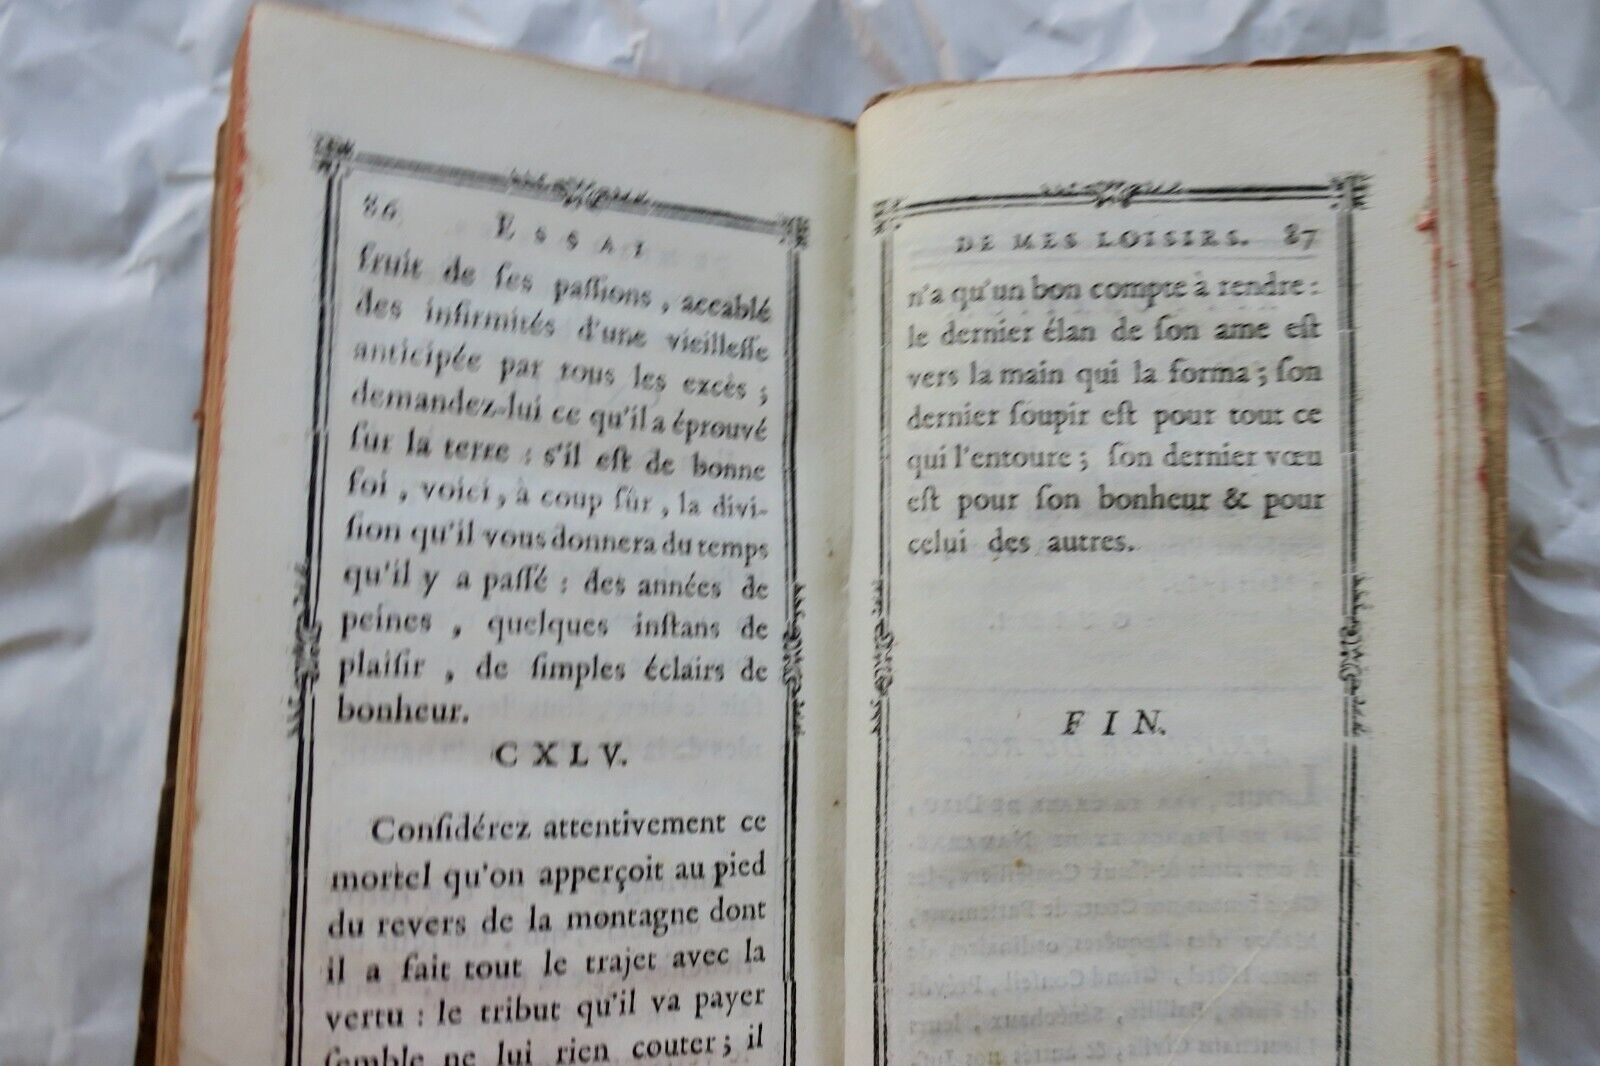 86 ESSAI
fruit de ſes paſſions, accablé
des infirmités d'une vieilleſſe
anticipée par tous les excès ;
demandez-lui ce qu'il a éprouvé
ſur la terre : s'il eſt de bonne
foi, voici, à coup ſûr, la divi-
ſion qu'il vous donnera du temps
qu'il y a paſſé : des années de
peines, quelques inſtans de
plaiſir, de ſimples éclairs de
bonheur.
CXLV.
Conſidérez attentivement ce
mortel qu'on apperçoit au pied
du revers de la montagne dont
il a fait tout le trajet avec la
vertu : le tribut qu'il va payer
ſemble ne lui rien couter ; il
DE MES LOISIRS. 87
n'a qu'un bon compte à rendre :
le dernier élan de ſon ame eſt
vers la main qui la forma ; ſon
dernier ſoupir eſt pour tout ce
qui l'entoure ; ſon dernier vœu
eſt pour ſon bonheur & pour
celui des autres.
FIN.